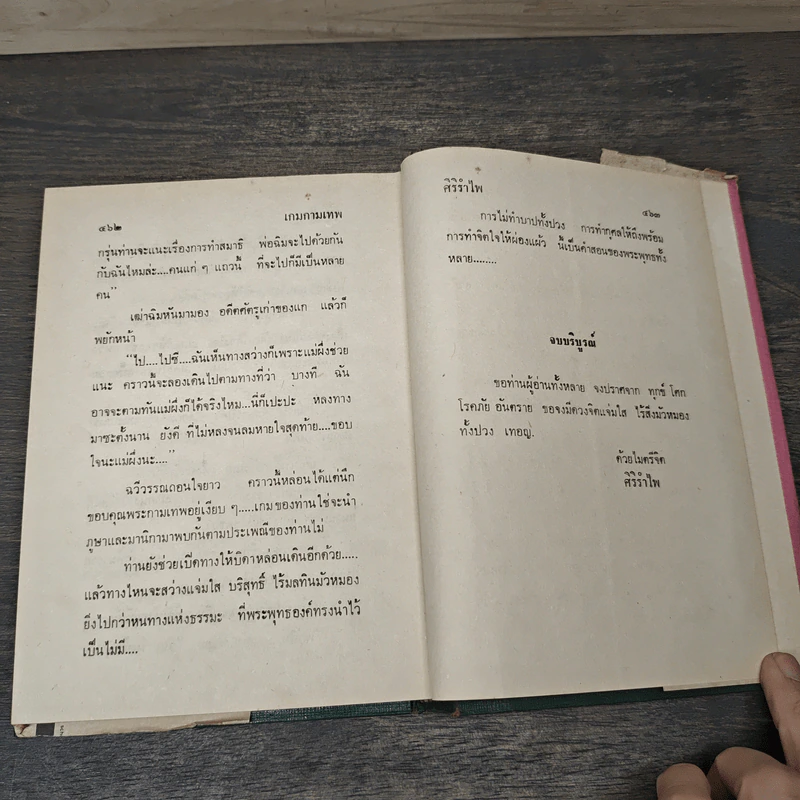 ๔๖๒ เกมกามเทพ
กรุ่นท่านจะแนะเรื่องการทำสมาธิ พ่อฉิมจะไปด้วยกัน
กับฉันไหมล่ะ....คนแก่ ๆ แถวนี้ ที่จะไปก็มีเป็นหลาย
คน"
เฒ่าฉิมหันมามอง อดีตศัตรูเก่าของแก แล้วก็
พยักหน้า
"ไป....ไปซี....ฉันเห็นทางสว่างก็เพราะแม่ผึ่งช่วย
แนะ คราวนี้จะลองเดินไปตามทางที่ว่า บางที ฉัน
อาจจะตามทันแม่ผึ่งก็ได้จริงไหม...นี่ก็เปะปะ หลงทาง
มาซะตั้งนาน ยังดี ที่ไม่หลงจนลมหายใจสุดท้าย....ขอบ
ใจนะแม่ผึ่งนะ...."
ฉวีวรรณถอนใจยาว คราวนี้หล่อนได้แต่นึก
ขอบคุณพระกามเทพอยู่เงียบ ๆ....เกมของท่านใช่จะนำ
ภูษาและมานิกามาพบกันตามประเพณีของท่านไม่
ท่านยังช่วยเปิดทางให้บิดาหล่อนเดินอีกด้วย.....
แล้วทางไหนจะสว่างแจ่มใส บริสุทธิ์ ไร้มลทินมัวหมอง
ยิ่งไปกว่าหนทางแห่งธรรมะ ที่พระพุทธองค์ทรงนำไว้
เป็นไม่มี....
ศิริรำไพ ๔๖๓
การไม่ทำบาปทั้งปวง การทำกุศลให้ถึงพร้อม
การทำจิตใจให้ผ่องแผ้ว นี้เป็นคำสอนของพระพุทธทั้ง
หลาย........
จบบริบูรณ์
ขอท่านผู้อ่านทั้งหลาย จงปราศจาก ทุกข์ โศก
โรคภัย อันตราย ขอจงมีดวงจิตแจ่มใส ไร้สิ่งมัวหมอง
ทั้งปวง เทอญ.
ด้วยไมตรีจิต
ศิริรำไพ